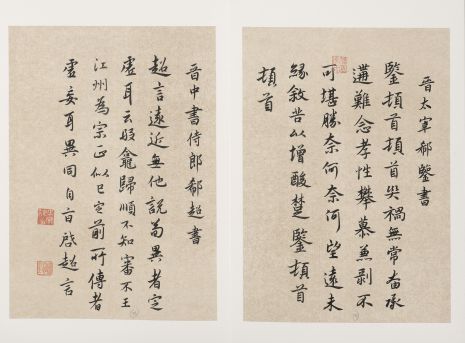 晉太宰郗鑒書
鑒頓首頓首災禍無常奄承
遘難念孝性攀慕兼剝不
可堪勝奈何奈何望遠未
緣敘苦以增酸楚鑒頓首
頓首
晉中書侍郎郗超書
超言遠近無他說苟異者定
虛耳云段龕歸順不知審不王
江州為宗正似已定前所傳者
虛妄耳異同自旨啟超言